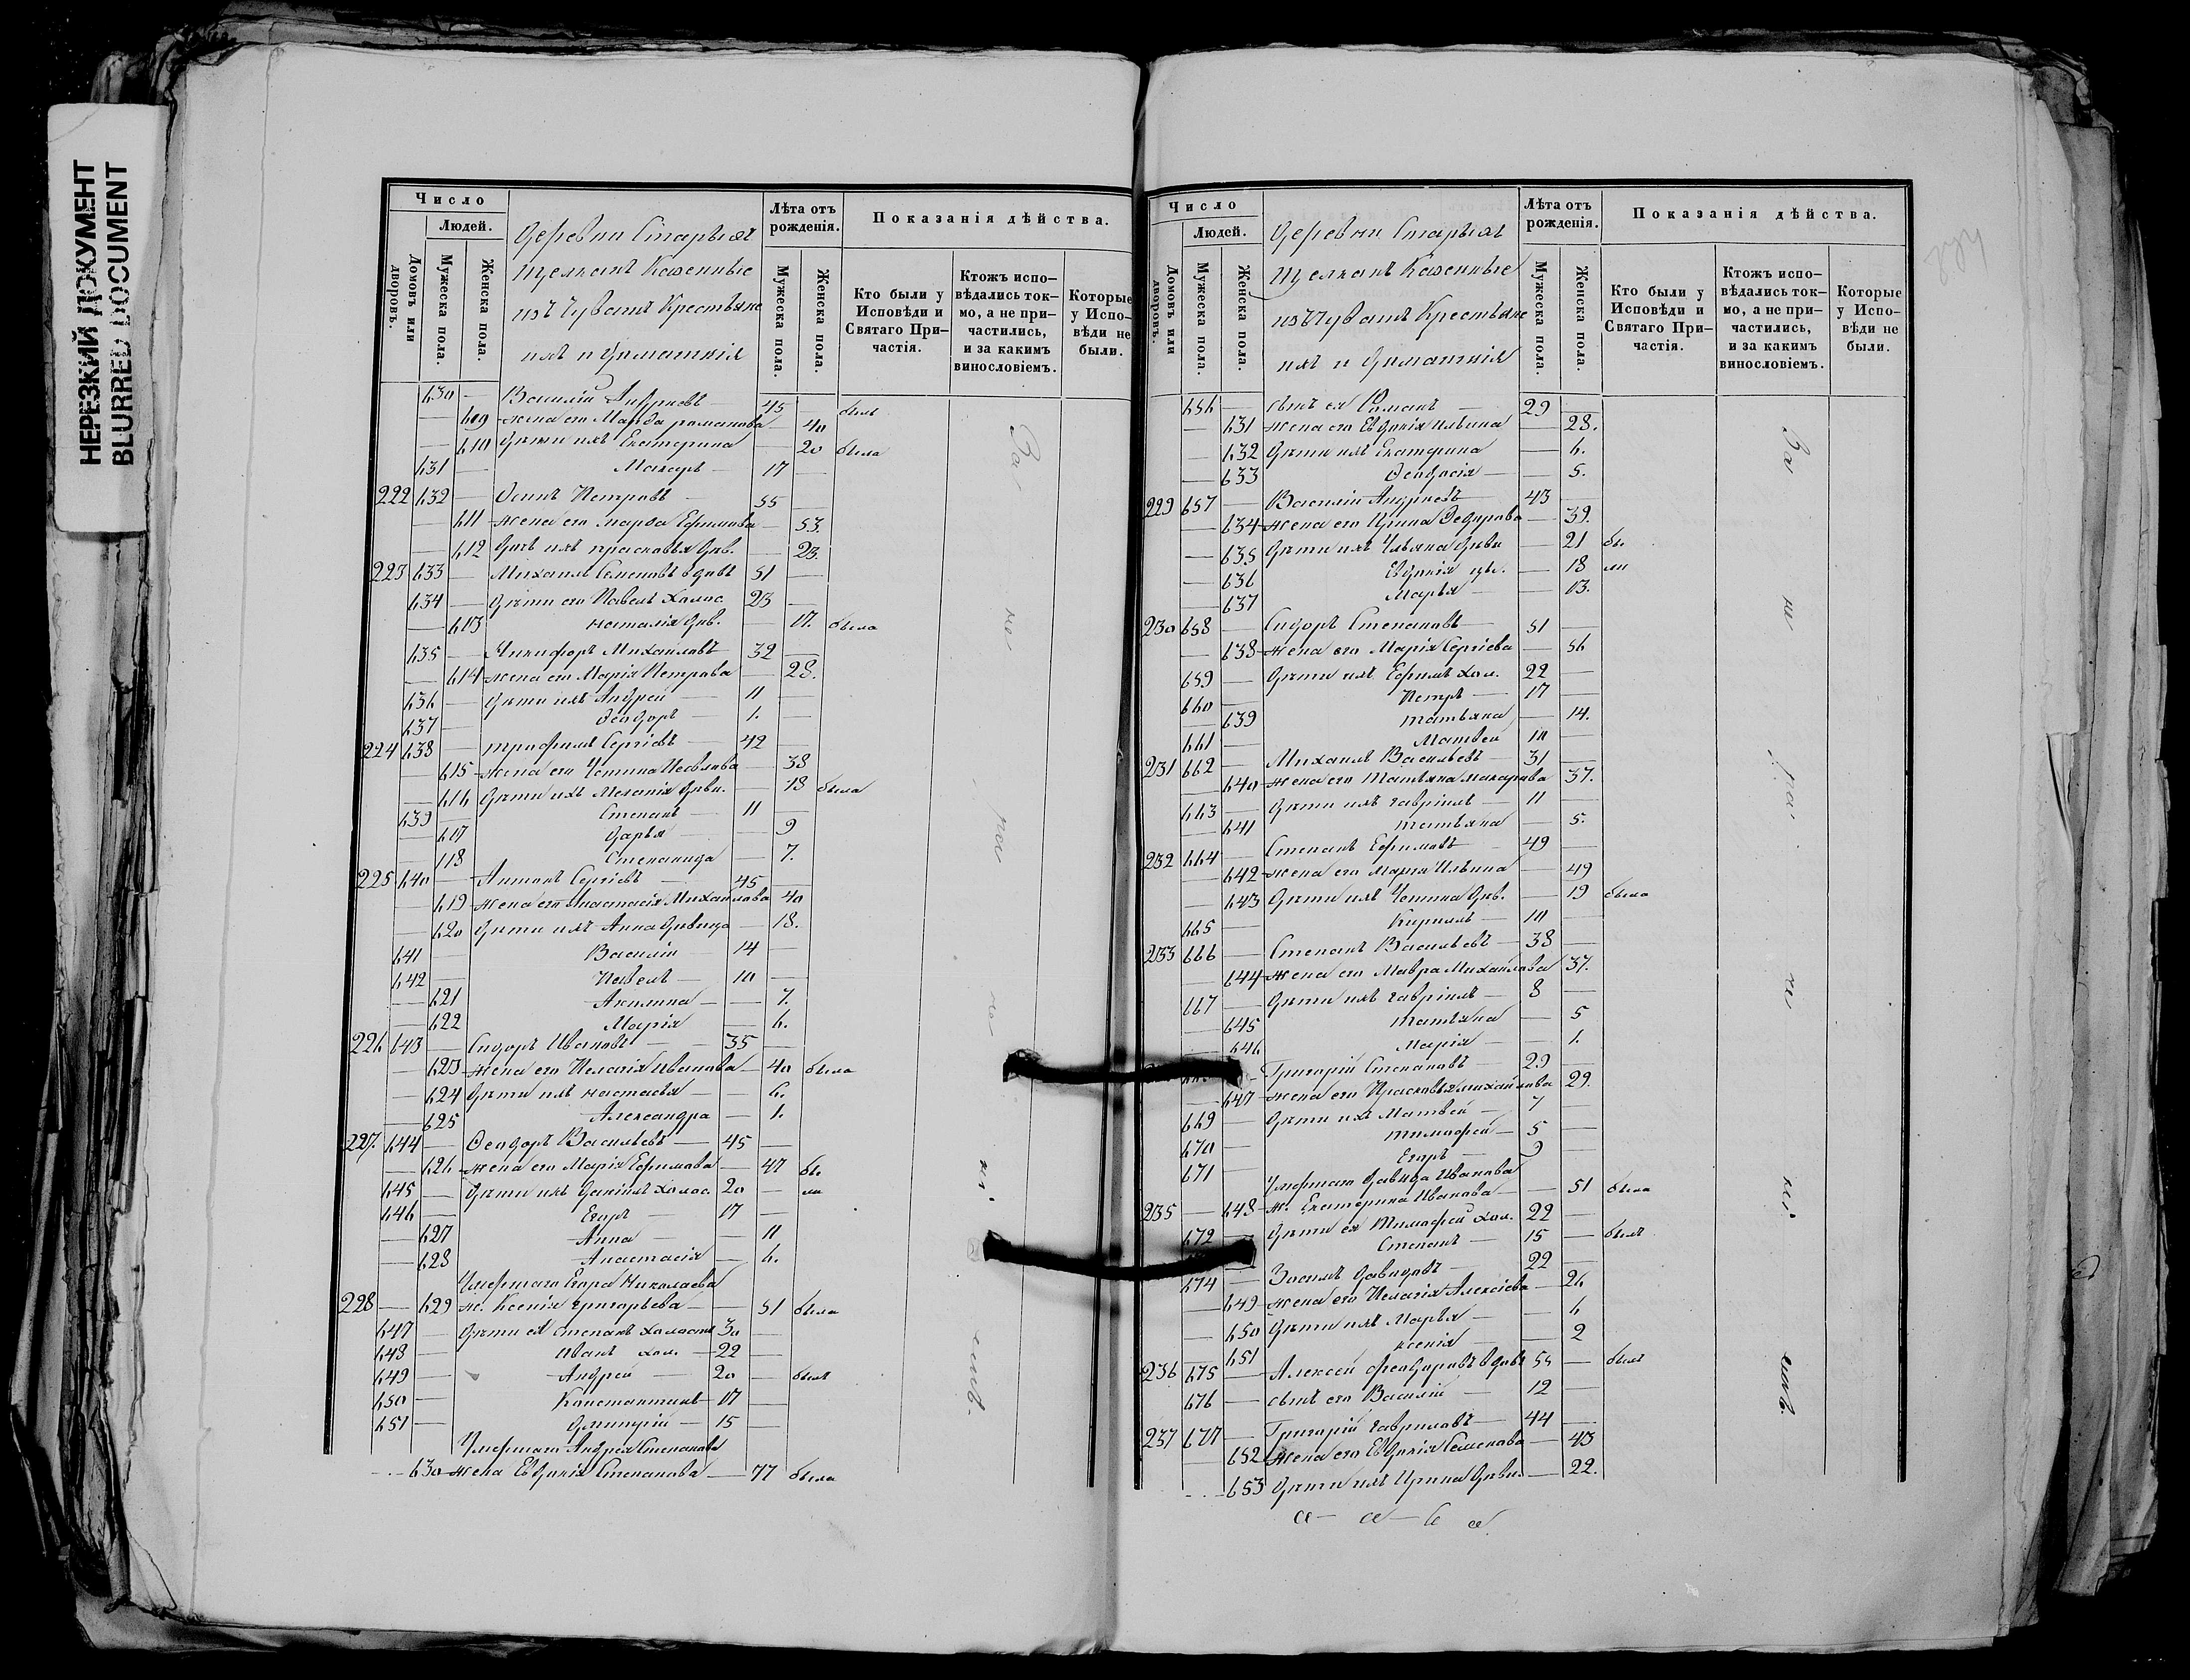 НЕРЕЗКИЙ ДОКУМЕНТ
BLURRED DOCUMENT
Число
Людей.
Домовъ или дворовъ.
Мужеска пола.
Женска пола.
Деревни Старыхъ
Щелканъ Казенные
изъ Чувашъ Крестьяне
ихъ и Домашнія
Лѣта отъ рожденія.
Мужеска пола.
Женска пола.
Показанія дѣйства.
Кто были у Исповѣди и Святаго Причастія.
Ктожъ исповѣдались токмо, а не причастились, и за какимъ винословіемъ.
Которые у Исповѣди не были.
630 — Василій Андреевъ — 45 — былъ
— 609 жена его Марѳа Романова 40
— 610 Дѣти ихъ Екатерина — 20 была
631 — Макаръ — 17
222 632 — Осипъ Петровъ — 55
— 611 жена его Марѳа Ефимова — 53.
— 612 Дочь ихъ Прасковья дѣв. — 23.
223 633 — Михаилъ Семеновъ вдовъ 51 —
634 — Дѣти его Павелъ Холос. 23 —
— 613 Наталія дѣв. — 17. была
635 — Никифоръ Михаиловъ 32 —
— 614 жена его Марія Петрова — 28.
636 — Дѣти ихъ Андрей — 11 —
637 — Ѳеодоръ — 1. —
224 638 — Трофимъ Сергіевъ — 42 —
— 615 жена его Устинія Павлова — 38
— 616 Дѣти ихъ Меланія дѣви. — 18 была
639 — Степанъ — 11 —
— 617 Дарья — 9
— 118 Степанида — 7.
225 640 — Антонъ Сергіевъ — 45 —
— 619 жена его Анастасія Михайлова 40
— 620 Дѣти ихъ Анна дѣвица — 18.
641 — Василій — 14 —
642 — Павелъ — 10 —
— 621 Акилина — 7.
— 622 Марія — 6.
226 643 — Сидоръ Ивановъ — 35 —
— 623 жена его Пелагія Иванова — 40 была
— 624 Дѣти ихъ Настасья — 6.
— 625 Александра — 1.
227. 644 — Ѳеодоръ Васильевъ — 45 —
— 626 жена его Марія Ефимова — 47 бы
645 — Дѣти ихъ Даніилъ холос. 20 — ли
646 — Егоръ — 17 —
— 627 Анна — 11
— 628 Анастасія — 6.
Умершаго Егора Николаева
228 — 629 ж. Ксенія Григорьева — 51 была
647 — Дѣти ея Степанъ холостъ 30 —
648 — Иванъ хол. — 22 —
649 — Андрей — 20 — былъ
650 — Константинъ — 17 —
651 — Дмитрій — 15 —
Умершаго Андрея Степанова
630 жена Евдокія Степанова — 77 была
За не ра че ні емъ.
Число
Людей.
Домовъ или дворовъ.
Мужеска пола.
Женска пола.
Деревни Старыхъ
Щелканъ Казенные
изъ Чувашъ Крестьяне
ихъ и Домашнія
Лѣта отъ рожденія.
Мужеска пола.
Женска пола.
Показанія дѣйства.
Кто были у Исповѣди и Святаго Причастія.
Ктожъ исповѣдались токмо, а не причастились, и за какимъ винословіемъ.
Которые у Исповѣди не были.
656 — сынъ ея Романъ — 29 —
— 631 жена его Евдокія Ильина — 28.
— 632 Дѣти ихъ Екатерина — 6.
— 633 Ѳеодосія — 5.
229 657 — Василій Андреевъ — 43 —
— 634 жена его Ирина Ѳедорова — 39.
— 635 Дѣти ихъ Ульяна дѣви — 21 бы
— 636 Евдокія дѣ. — 18 ли
— 637 Марья — 13.
230 658 — Сидоръ Степановъ — 51 —
— 638 жена его Марія Сергіева — 56
659 — Дѣти ихъ Ефимъ хол. 22 —
660 — Петръ — 17 —
— 639 Татьяна — 14.
661 — Матвей — 10 —
231 662 — Михаилъ Васильевъ — 31 —
— 640 жена его Татьяна Макарова 37.
663 — Дѣти ихъ Гавріилъ — 11 —
— 641 Татьяна — 5.
232 664 — Степанъ Ефимовъ — 49 —
— 642 жена его Марія Ильина — 49
— 643 Дѣти ихъ Устинія дѣв. — 19 была
665 — Кириллъ — 10 —
233 666 — Степанъ Васильевъ — 38 —
— 644 жена его Мавра Михайлова 37.
667 — Дѣти ихъ Гавріилъ — 8 —
— 645 Татьяна — 5
— 646 Марія — 1.
Григорій Степановъ — 29 —
— 647 жена его Прасковья Михайлова 29.
669 — Дѣти ихъ Матвей — 7 —
670 — Тимофей — 5 —
671 — Егоръ — 3 —
Умершаго Давида Иванова
235 — 648 ж. Екатерина Иванова — 51 была
672 — Дѣти ея Тимофей хол. 22 —
Степанъ — 15 — былъ
674 — Зосимъ Давидовъ — 22 —
— 649 жена его Пелагія Алексіева — 26
— 650 Дѣти ихъ Марья — 6
— 651 Ксенія — 2
236 675 — Алексей Ѳеодоровъ вдовъ 54 — былъ
676 — сынъ его Василій — 12 —
237 677 — Григорій Гавриловъ — 44 —
— 652 жена его Евдокія Семенова — 43
653 Дѣти ихъ Ирина дѣви. — 22.
За не ра че ні емъ.